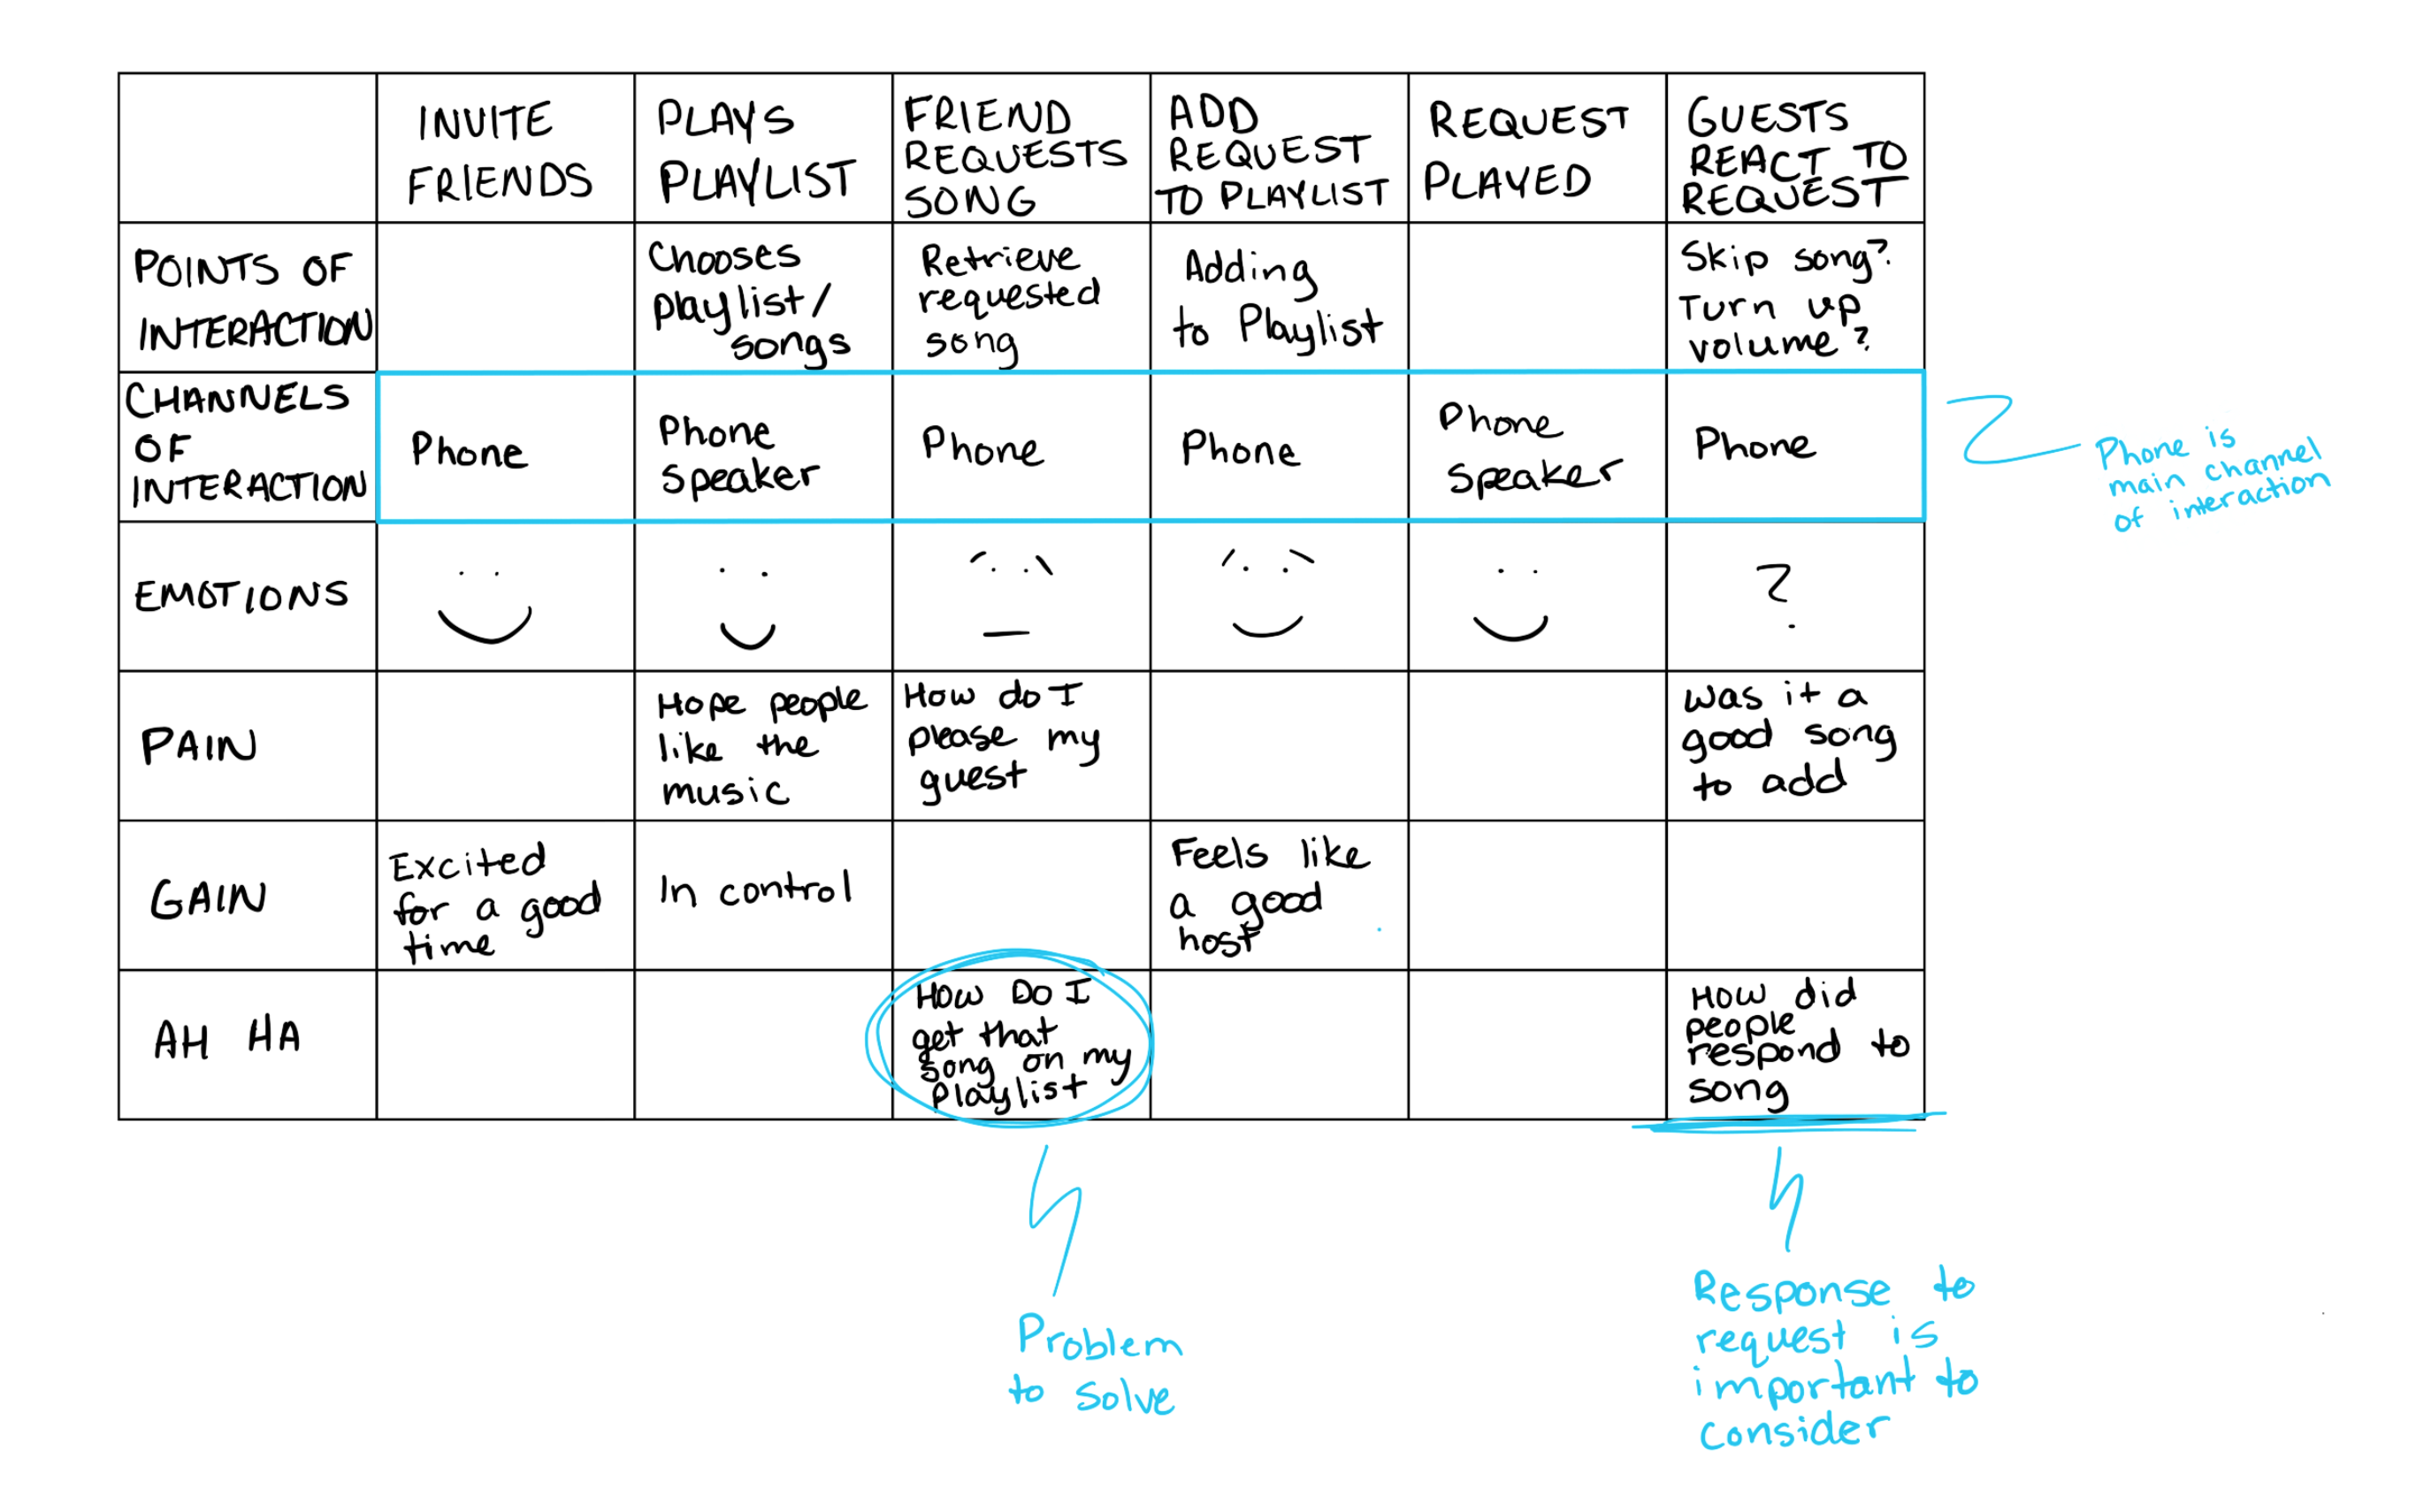 INVITE
FRIENDS
PLAYS
PLAYLIST
FRIEND
REQUESTS
SONG
ADD
REQUEST
TO PLAYLIST
REQUEST
PLAYED
GUESTS
REACT TO
REQUEST
POINTS OF
INTERACTION
Chooses
playlist/
songs
Retrieve
requested
song
Adding
to Playlist
Skip song?
Turn up
volume?
CHANNELS
OF
INTERACTION
Phone
Phone
Speaker
Phone
Phone
Phone
Speaker
Phone
Phone is
main channel
of interaction
EMOTIONS
?
PAIN
Hope people
like the
music
How do I
please my
guest
Was it a
good song
to add
GAIN
Excited
for a good
time
In control
Feels like
a good
host
AH HA
How Do I
get that
song on my
Playlist
How did
people
respond to
song
Problem
to solve
Response to
request is
important to
consider